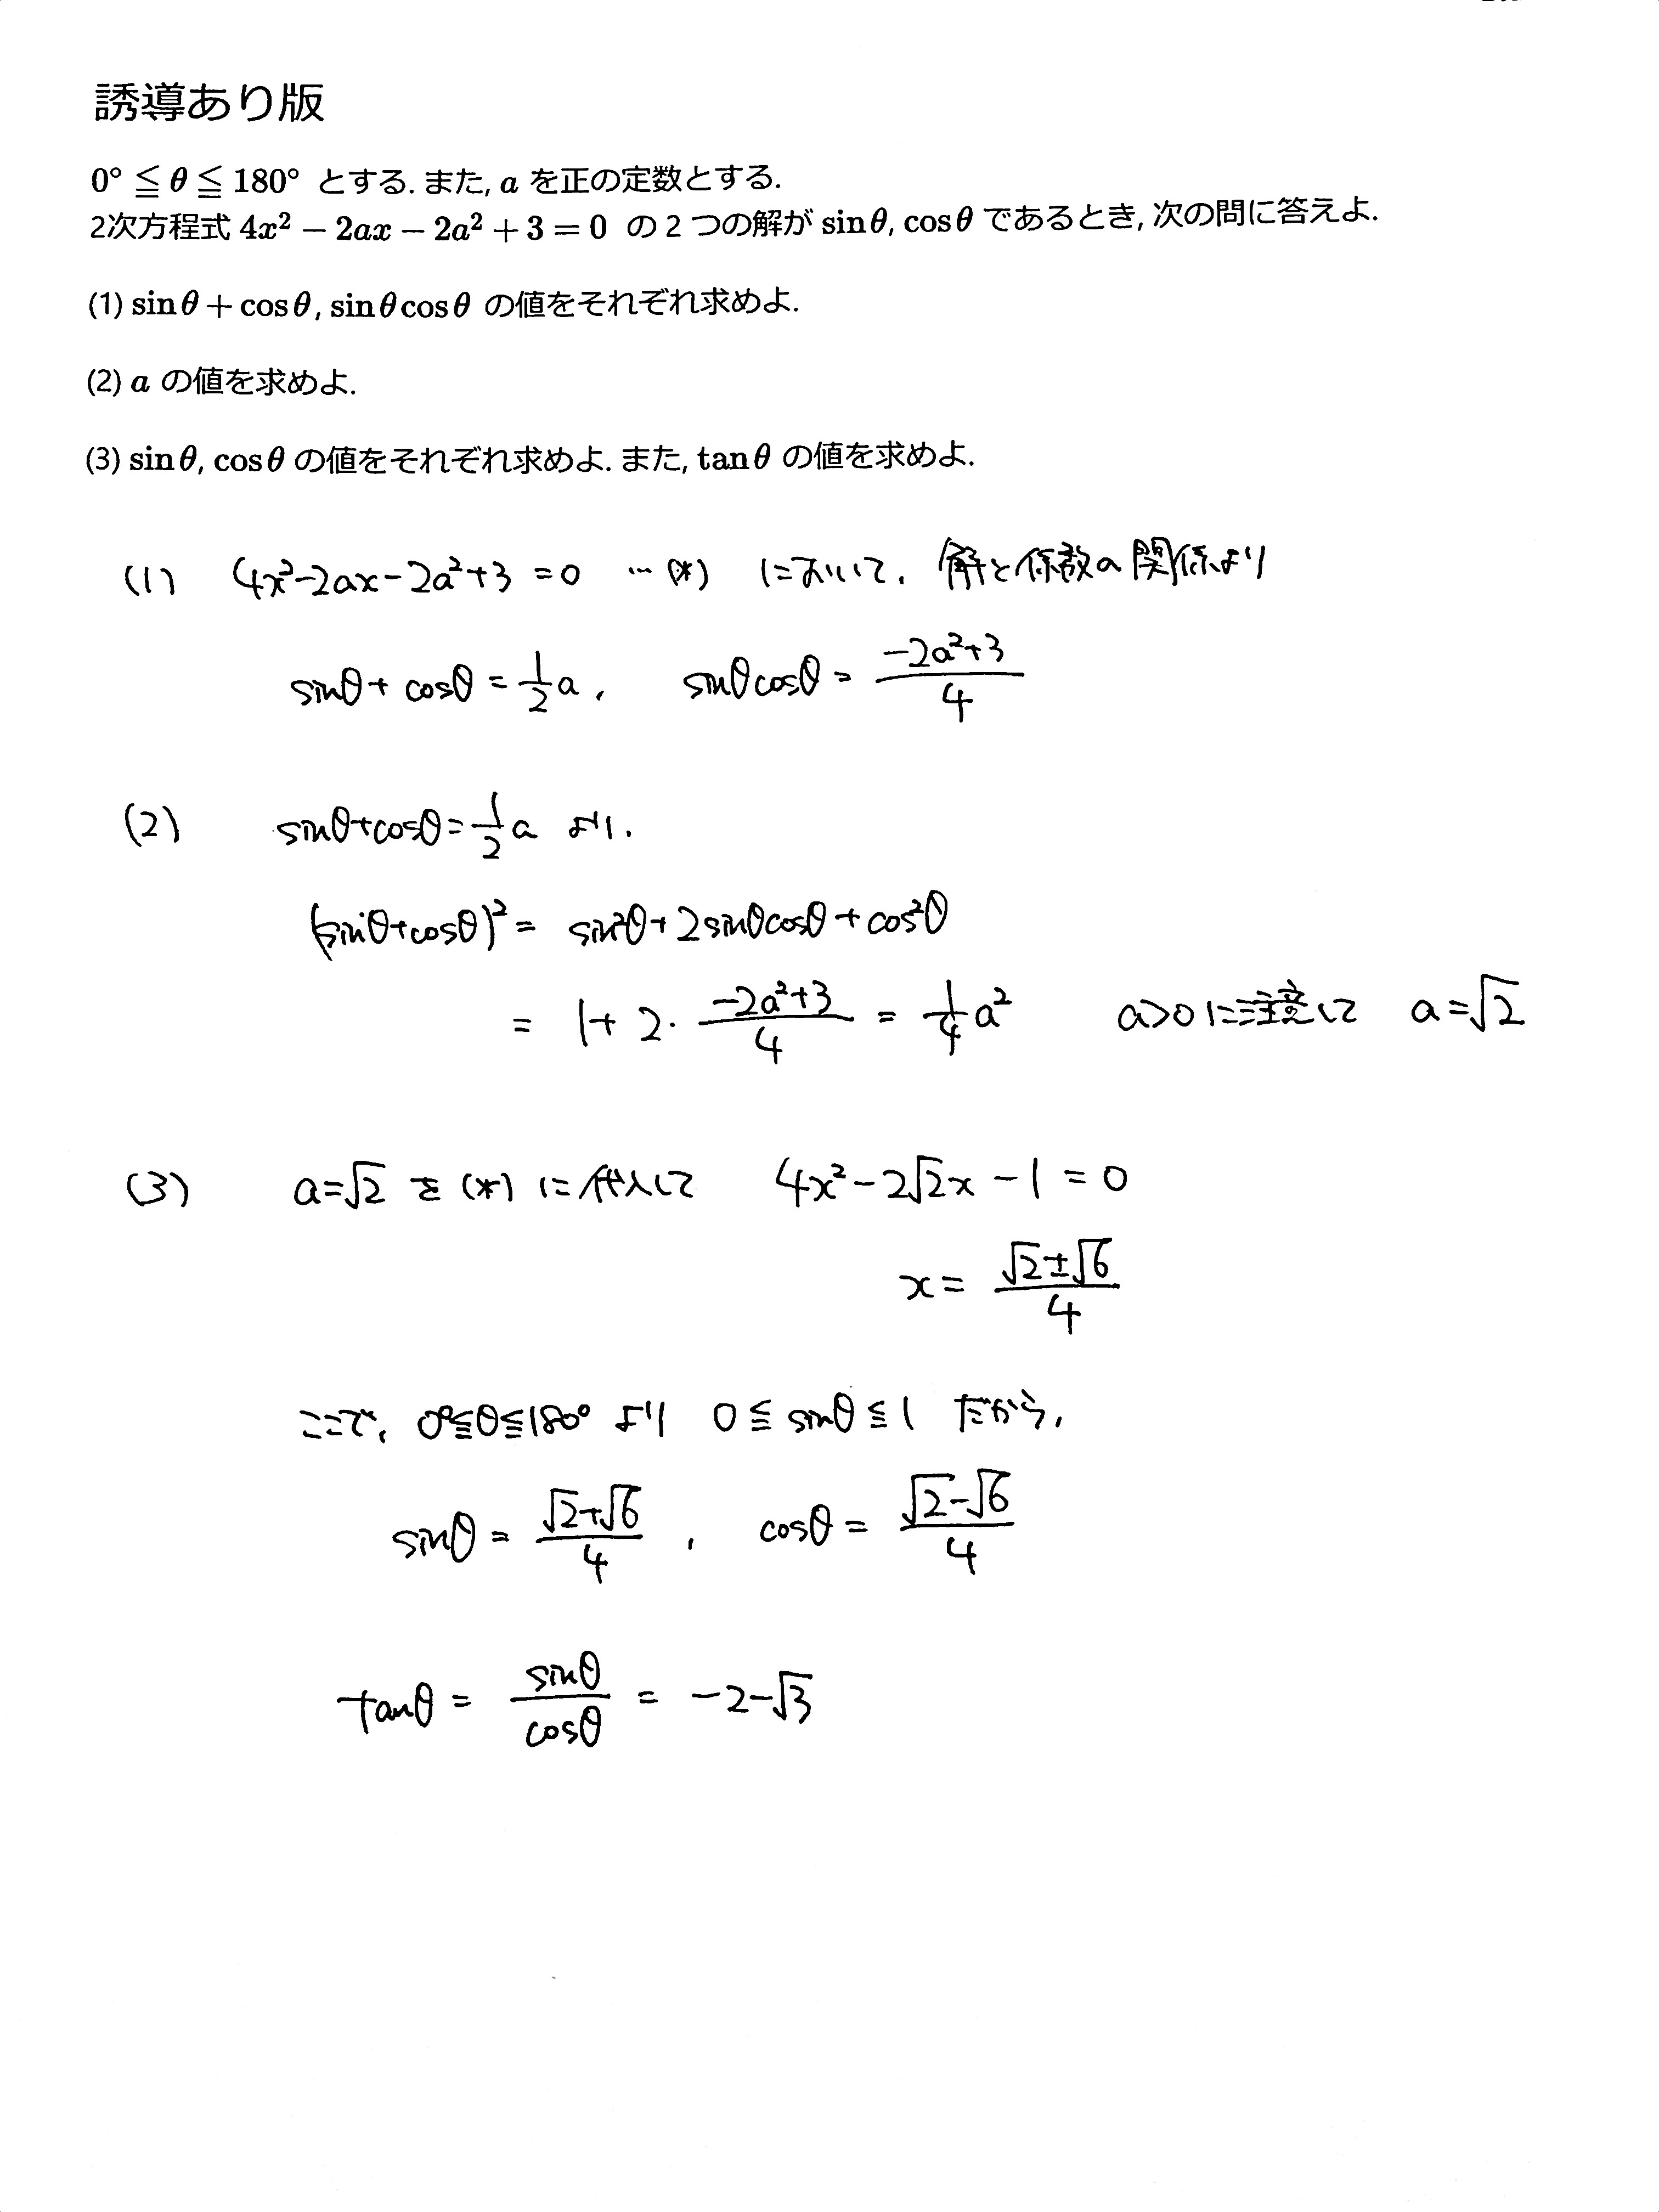 誘導あり版
0° ≦ θ ≦ 180° とする. また, a を正の定数とする.
2次方程式 4x² − 2ax − 2a² + 3 = 0 の 2 つの解が sinθ, cosθ であるとき, 次の問に答えよ.
(1) sinθ + cosθ, sinθcosθ の値をそれぞれ求めよ.
(2) a の値を求めよ.
(3) sinθ, cosθ の値をそれぞれ求めよ. また, tanθ の値を求めよ.
(1) 4x²−2ax−2a²+3 = 0 …(*) において、解と係数の関係より
sinθ + cosθ = 1/2 a , sinθcosθ = (−2a²+3)/4
(2) sinθ+cosθ = 1/2 a より、
(sinθ+cosθ)² = sin²θ + 2sinθcosθ + cos²θ
= 1 + 2・(−2a²+3)/4 = 1/4 a² a>0 に注意して a = √2
(3) a=√2 を (*) に代入して 4x² − 2√2x − 1 = 0
x = (√2±√6)/4
ここで、0°≦θ≦180° より 0 ≦ sinθ ≦ 1 だから、
sinθ = (√2+√6)/4 , cosθ = (√2−√6)/4
tanθ = sinθ/cosθ = −2−√3